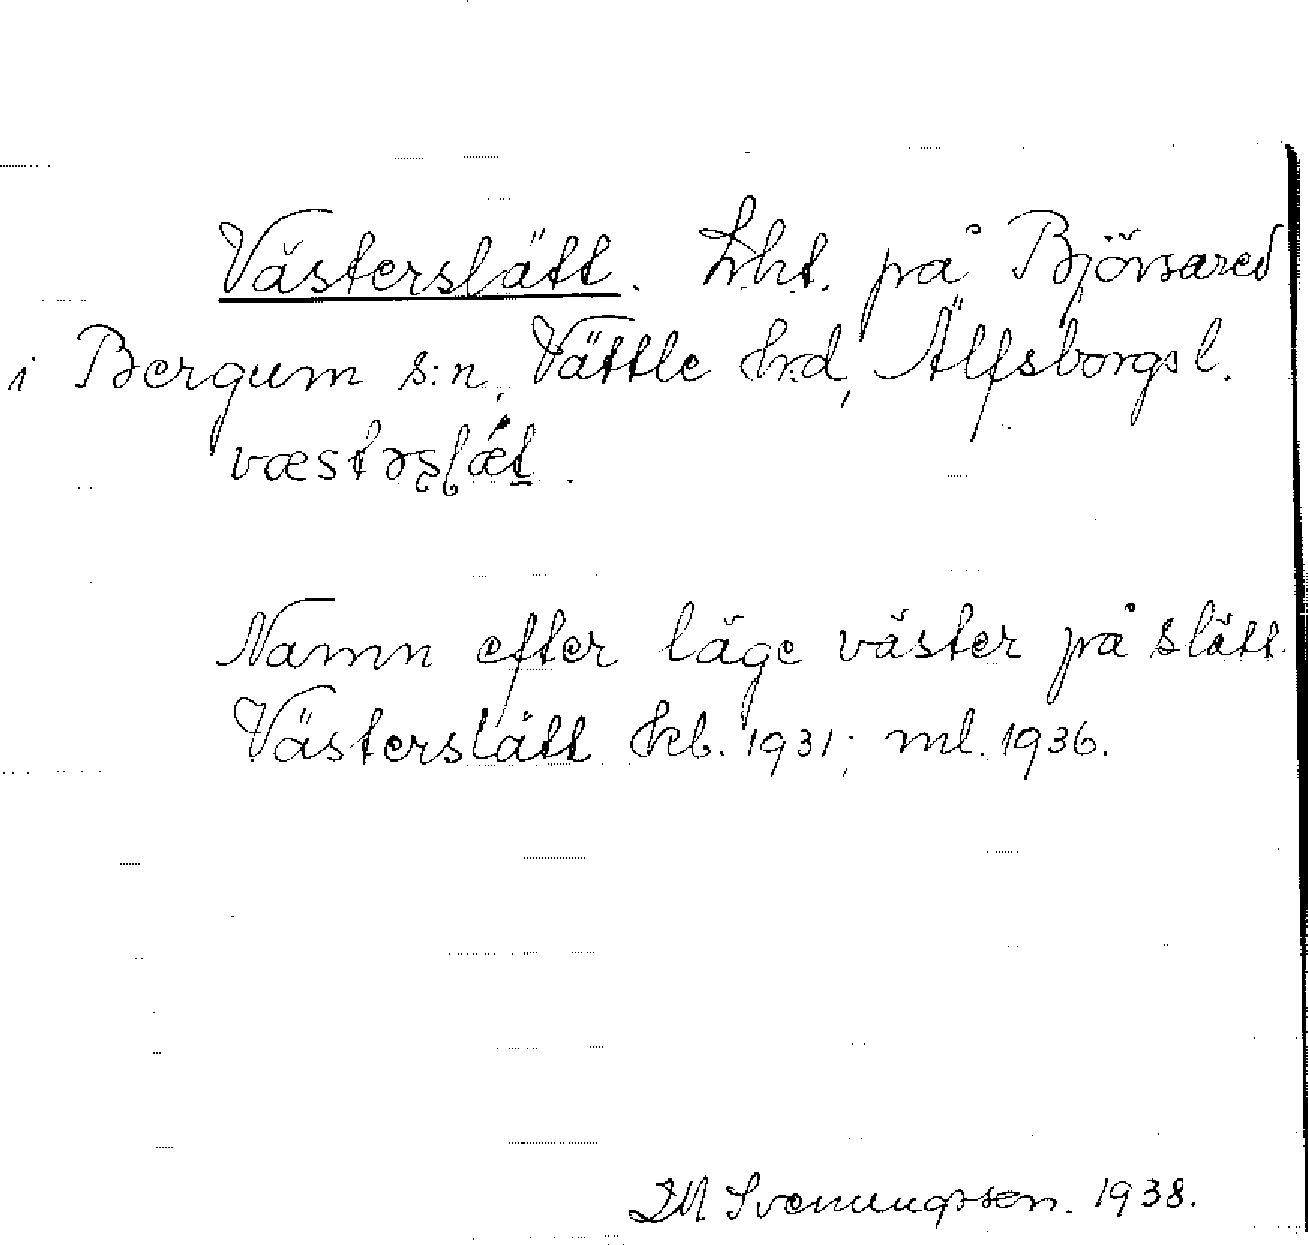 Västerslätt. Lht. på Björsared
i Bergum s:n, Vättle hrd, Älfsborgs l.
væstəṣlǽt.
Namn efter läge väster på slätt.
Västerslätt hkb. 1931; ml. 1936.
Svenungsson. 1938.